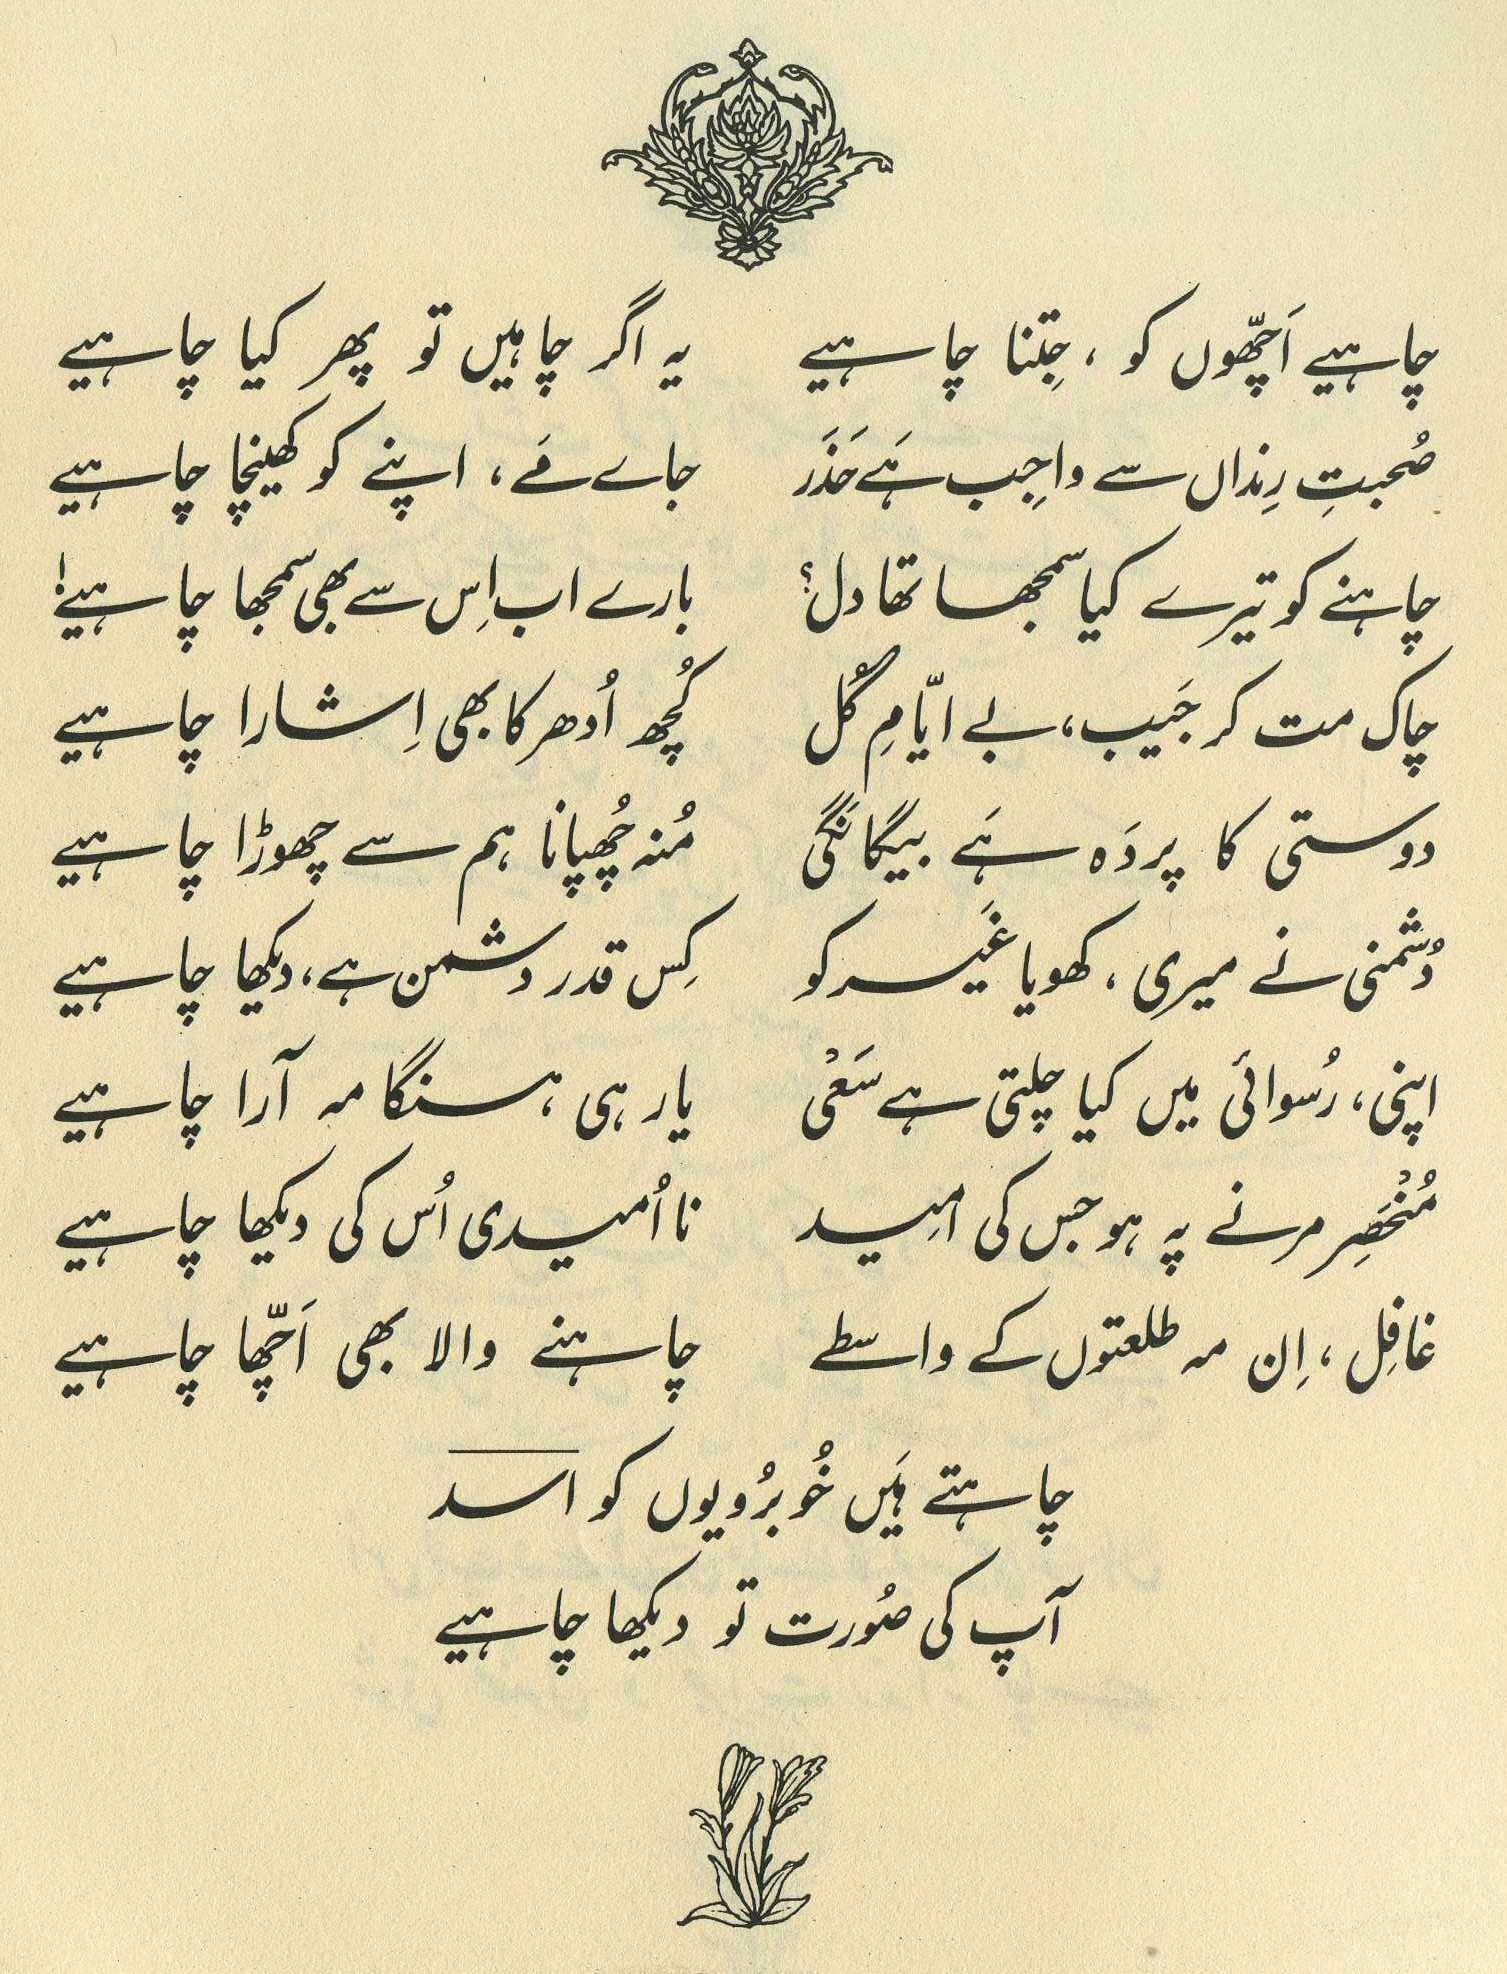 چاہیے اَچّھوں کو ، جِتنا چاہیے یہ اگر چاہیں تو پھر کیا چاہیے
صُحبتِ رِنداں سے واجِب ہَے حَذَر جاے مَے ، اپنے کو کھینچا چاہیے
چاہنے کو تیرے کیا سمجھا تھا دل؟ بارے اب اِس سے بھی سمجھا چاہیے!
چاک مت کر جَیب، بے ایّامِ گُل کُچھ اُدھر کا بھی اِشارا چاہیے
دوستی کا پردَہ ہَے بیگانَگی مُنہ چُھپانا ہم سے چھوڑا چاہیے
دُشمنی نے میری ، کھویا غَیر کو کِس قدر دشمن ہے ، دیکھا چاہیے
اپنی، رُسوائی میں کیا چلتی ہے سَعْی یار ہی ہنگامہ آرا چاہیے
مُنْحَصِر مرنے پہ ہو جس کی امِید نااُمیدی اُس کی دیکھا چاہیے
غافِل ، اِن مہ طلعتوں کے واسطے چاہنے والا بھی اَچّھا چاہیے
چاہتے ہَیں خُوبرُویوں کو اسد
آپ کی صُورت تو دیکھا چاہیے